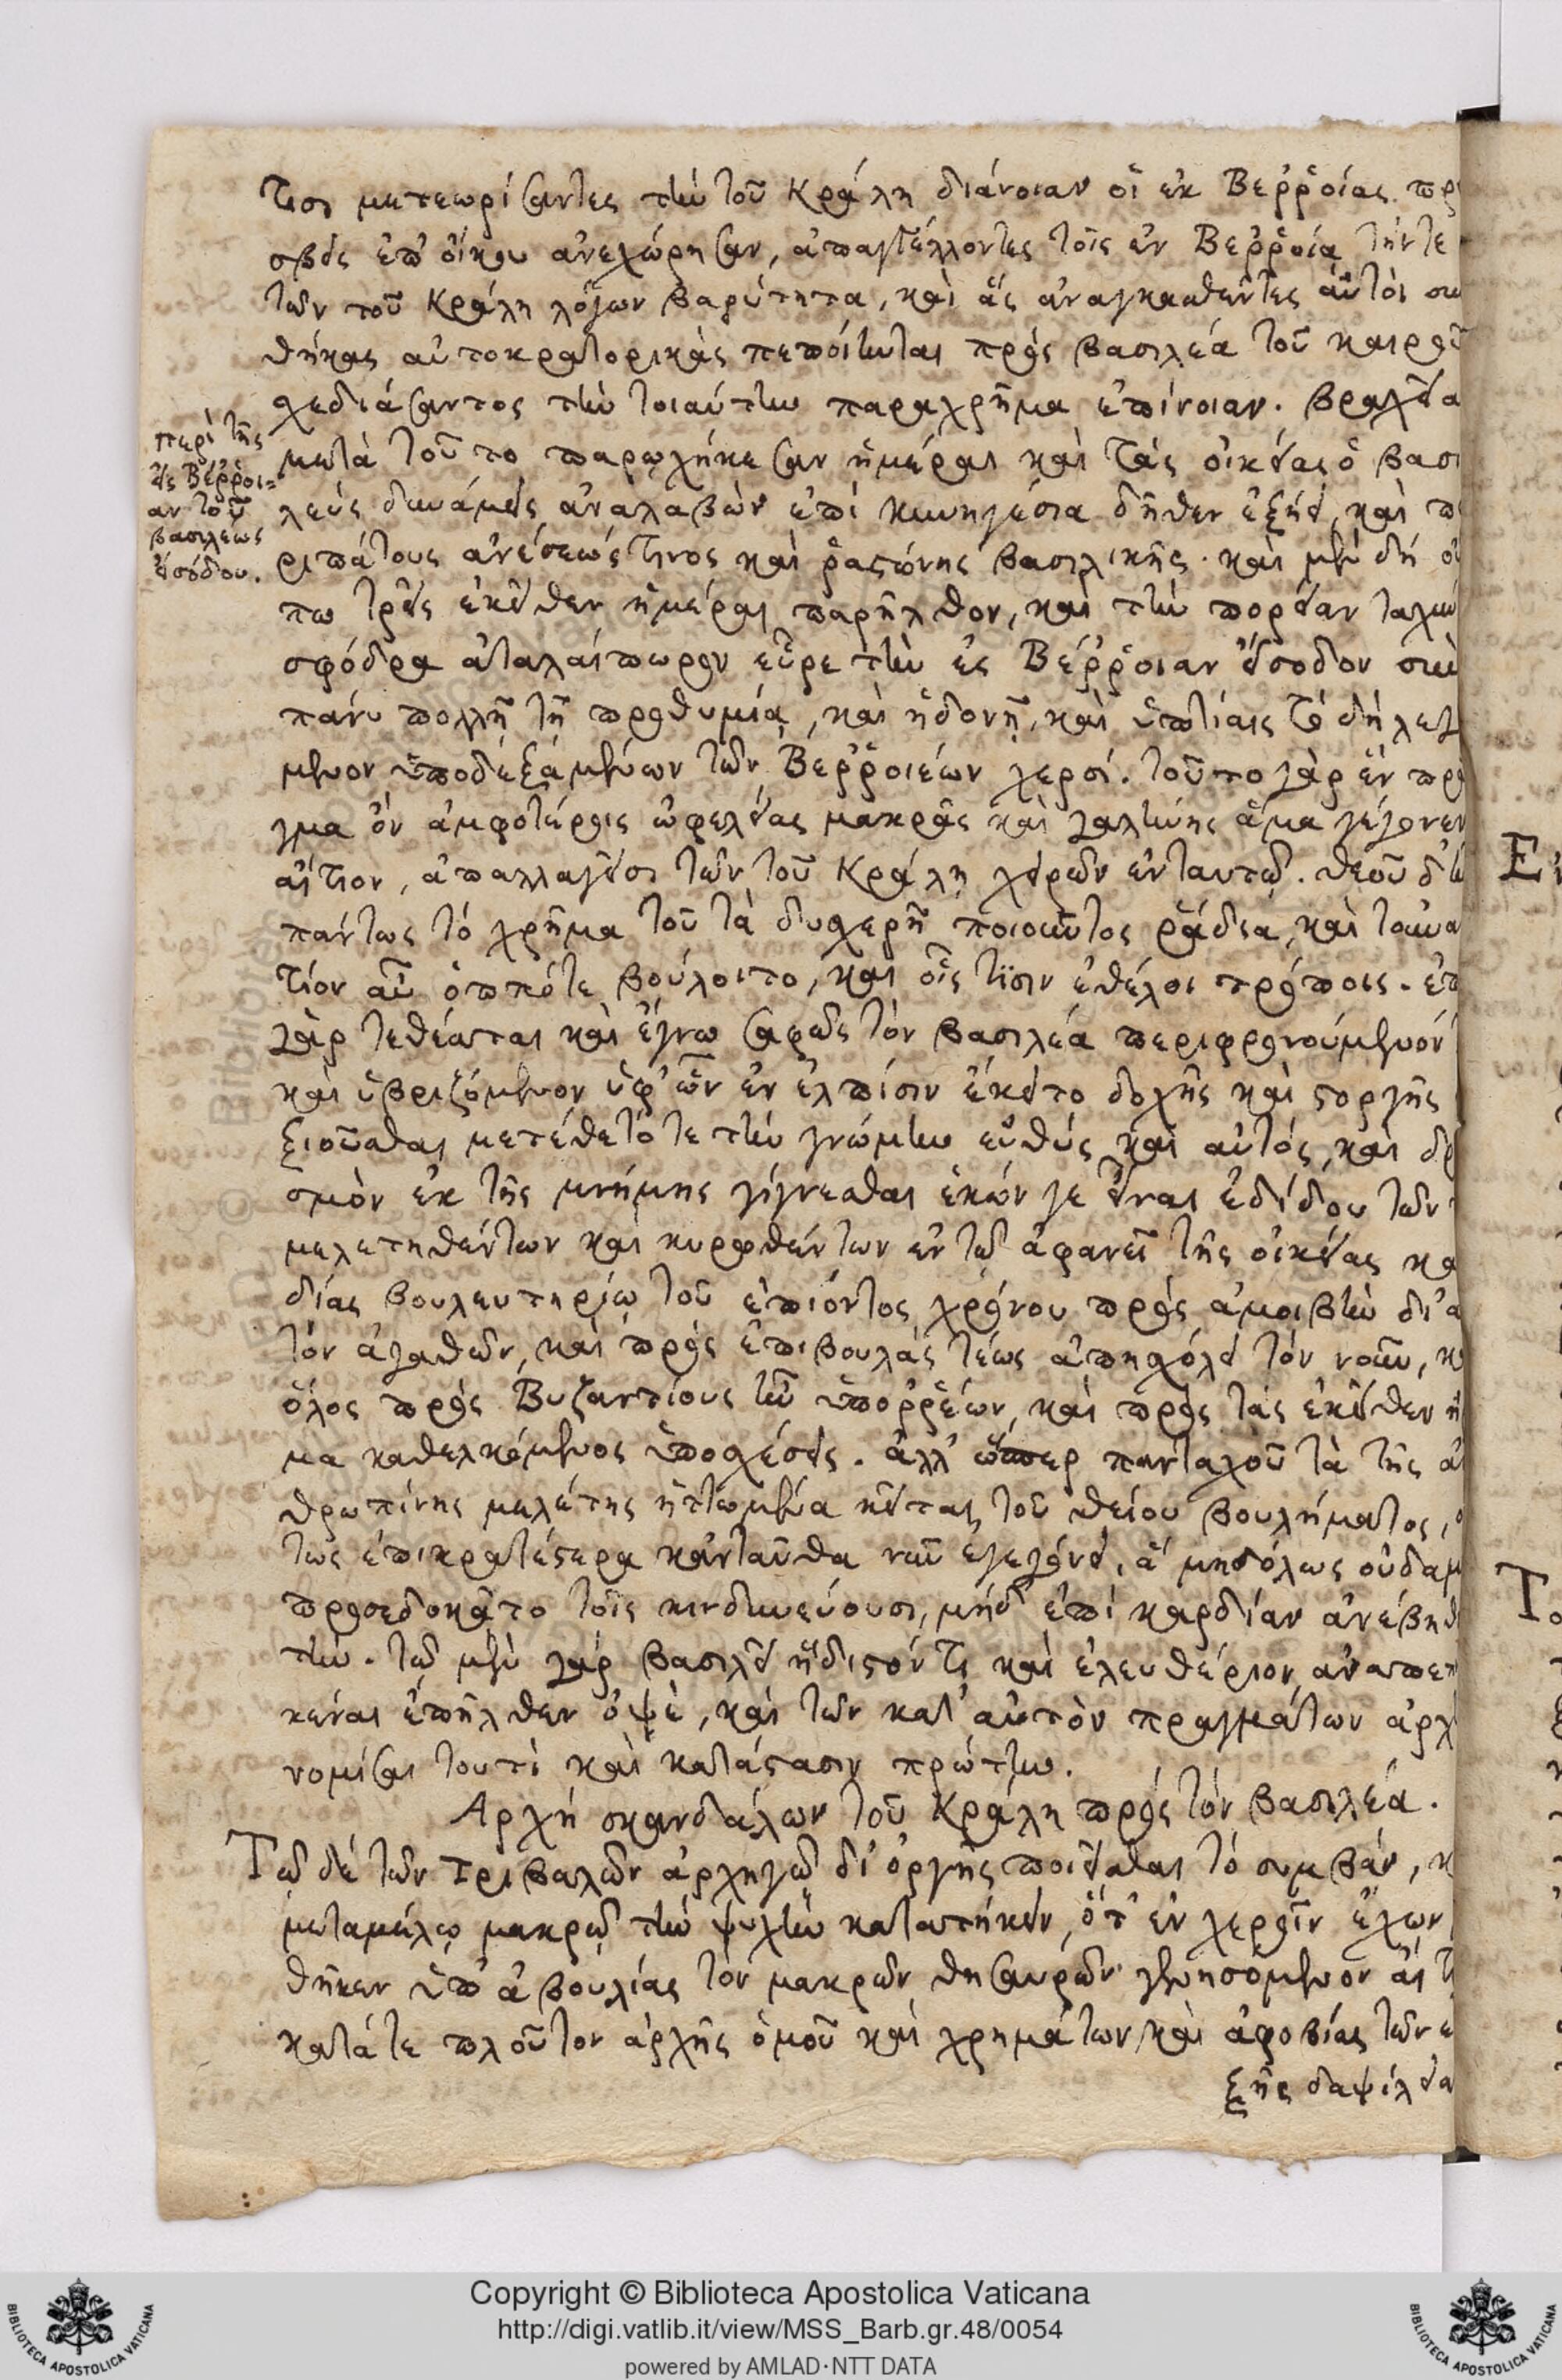 τισι μετεωρίσαντες τὴν τοῦ Κράλη διάνοιαν οἱ ἐκ Βεῤῥοίας πρ
σβεις ἐπ' οἴκου ἀνεχώρησαν, ἀπαγγέλλοντες τοῖς ἐν Βεῤῥοία τήν τε
τῶν τοῦ Κράλη λόγων βαρύτητα, καὶ ἃς ἀναγκασθέντες αὐτοὶ συν
θήκας αὐτοκρατορικὰς πεποίηνται πρὸς βασιλέα τοῦ καιροῦ
σχεδιάσαντος τὴν τοιαύτην παραχρῆμα ἐπίνοιαν. βραχεῖα
περὶ τῆς
εἰς Βέῤῥοι-
αν τοῦ
βασιλέως
εἰσόδου.
μετὰ τοῦτο παρῳχήκεσαν ἡμέραι καὶ τὰς οἰκείας ὁ βασι
λεὺς δυνάμεις ἀναλαβὼν ἐπὶ κυνηγέσια δῆθεν ἐξῄει, καὶ πε
ριπάτους ἀνέσεώς τινος καὶ ῥαστώνης βασιλικῆς. καὶ μὲν δὴ οὔ
πω τρεῖς ἐκεῖθεν ἡμέραι παρῆλθον, καὶ τὴν πορείαν ταχινὴν
σφόδρα ἀταλαίπωρον εὗρε τὴν ἐς Βέῤῥοιαν εἴσοδον σὺν
πάνυ πολλῇ τῇ προθυμίᾳ, καὶ ἡδονῇ, καὶ ὑπτίαις τὸ δὴ λεγ
μενον ὑποδεξαμένων τῶν Βεῤῥοιέων χερσί. τοῦτο γὰρ ἓν πρᾶ
γμα ὂν ἀμφοτέροις ὠφελείας μακρᾶς καὶ γαλήνης ἅμα γέγονεν
αἴτιον, ἀπαλλαγεῖσι τῶν τοῦ Κράλη χειρῶν ἐνταυτῷ. θεοῦ δ' ἦν
πάντως τὸ χρῆμα τοῦ τὰ δυσχερῆ ποιοῦντος ῥάδια, καὶ τοὐναν
τίον αὖ ὁππότε βούλοιτο, καὶ οἷς τισιν ἐθέλοι τρόποις. ἐπ
γὰρ τεθέαται καὶ ἔγνω σαφῶς τὸν βασιλέα περιφρονούμενόν
καὶ ὑβριζόμενον ὑφ' ὧν ἐν ἐλπίσιν ἔκειτο δοχῆς καὶ στοργῆς
ξιοῦσθαι μετέθετό τε τὴν γνώμην εὐθὺς καὶ αὐτός, καὶ δρ
σμὸν ἐκ τῆς μνήμης γίγνεσθαι ἑκών γε εἶναι ἐδίδου τῶν
μελετηθέντων καὶ κυρωθέντων ἐν τῷ ἀφανεῖ τῆς οἰκείας κα
δίας βουλευτηρίῳ τοῦ ἐπιόντος χρόνου πρὸς ἀμοιβὴν δι' α
τὸν ἀγαθῶν, καὶ πρὸς ἐπιβουλὰς τέως ἀπησχόλει τὸν νοῦν, κ
ὅλος πρὸς Βυζαντίους ἦν ὑποῤῥέων, καὶ πρὸς τὰς ἐκεῖθεν ἠ
μα καθελκόμενος ὑποσχέσεις. ἀλλ' ὥσπερ πανταχοῦ τὰ τῆς ἀν
θρωπίνης μελέτης ἡττώμενα κεῖται τοῦ θείου βουλήματος, ο
τως ἐπικρατέστερα κἀνταῦθα νῦν ἐγεγόνει, ἃ μηδόλως οὐδαμ
προσεδοκᾶτο τοῖς κινδυνεύουσι, μήδ' ἐπὶ καρδίαν ἀνέβη
την. τῷ μὲν γὰρ βασιλεῖ ἥδιστόν τι καὶ ἐλευθέριον ἀναπε
κέναι ἐπῆλθεν ὀψὲ, καὶ τῶν κατ' αὐτὸν πραγμάτων ἀρχ
νομίσαι τουτὶ καὶ κατάστασιν πρώτην.
Ἀρχὴ σκανδάλων τοῦ Κράλη πρὸς τὸν βασιλέα.
Τῷ δὲ τῶν Τριβαλῶν ἀρχηγῷ δι' ὀργῆς ποιεῖσθαι τὸ συμβὰν, κ
μεταμέλῳ μακρῷ τὴν ψυχὴν κατατήκειν, ὅτ' ἐν χερσὶν ἔχων
θῆκεν ὑπ' ἀβουλίας τὸν μακρῶν θησαυρῶν γενησόμενον αἴτι
κατά τε πλοῦτον ἀρχῆς ὁμοῦ καὶ χρημάτων, καὶ ἀφοβίας τῶν ε
ξῆς δαψίλεια
Copyright © Biblioteca Apostolica Vaticana
http://digi.vatlib.it/view/MSS_Barb.gr.48/0054
powered by AMLAD·NTT DATA
BIBLIOTECA APOSTOLICA VATICANA
BIBLIOTECA APOSTOLICA VATICANA